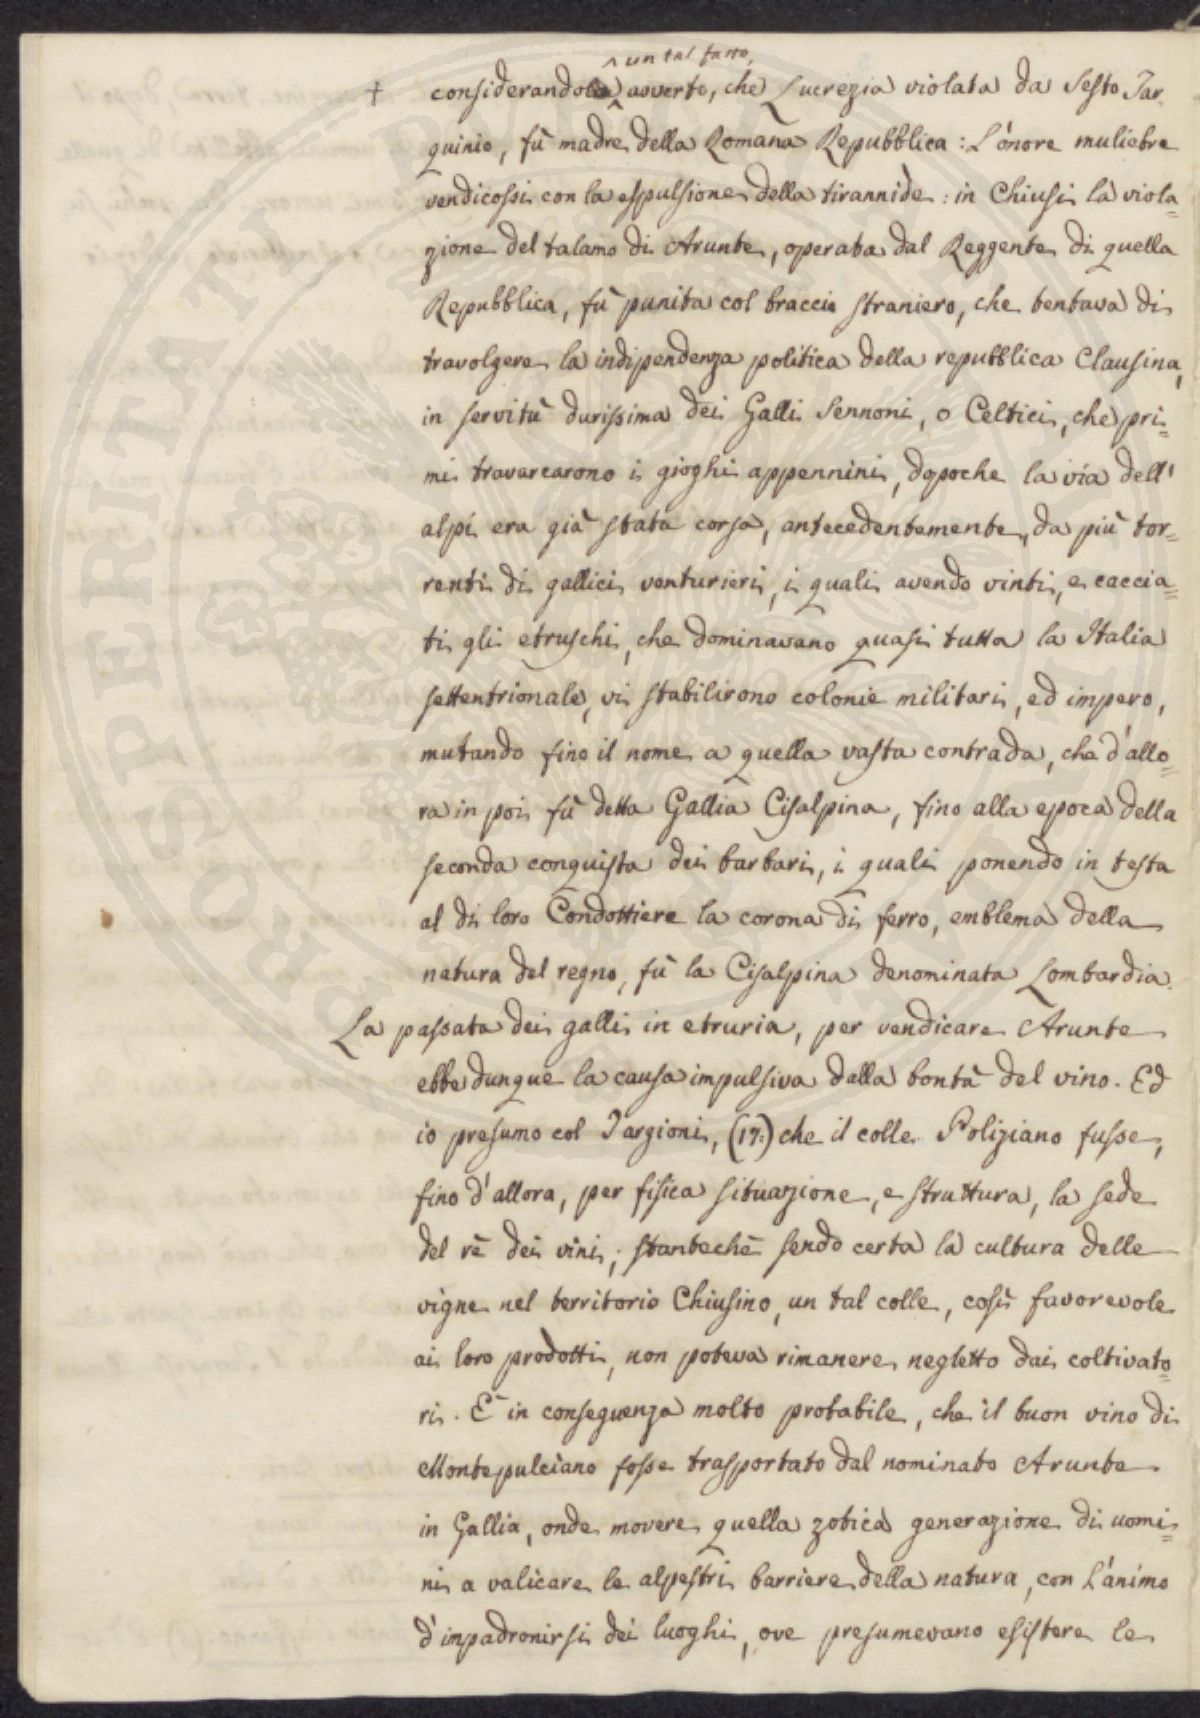 ^ un tal fatto,
† considerando avverto, che Lucrezia violata da Sesto Tar-
quinio, fù madre della Romana Repubblica: L'onore muliebre
vendicossi con la espulsione della tirannide: in Chiusi la viola=
zione del talamo di Arunte, operata dal Reggente di quella
Repubblica, fù punita col braccio straniero, che tentava di
travolgere la indipendenza politica della repubblica Clausina,
in servitù durissima dei Galli Sennoni, o Celtici, che pri=
mi travarcarono i gioghi appennini, dopoche la via dell'
alpi era già stata corsa, antecedentemente, da più tor=
renti di gallici venturieri, i quali avendo vinti, e caccia=
ti gli etruschi, che dominavano quasi tutta la Italia
settentrionale, vi stabilirono colonie militari, ed impero,
mutando fino il nome a quella vasta contrada, che d'allo=
ra in poi fù detta Gallia Cisalpina, fino alla epoca della
seconda conquista dei barbari, i quali ponendo in testa
al di loro Condottiere la corona di ferro, emblema della
natura del regno, fù la Cisalpina denominata Lombardia.
La passata dei galli in etruria, per vendicare Arunte
ebbe dunque la causa impulsiva dalla bontà del vino. Ed
io presumo col Targioni, (17:) che il colle Poliziano fusse,
fino d'allora, per fisica situazione, e struttura, la sede
del rè dei vini; stantechè sendo certa la cultura delle
vigne nel territorio Chiusino, un tal colle, così favorevole
ai loro prodotti, non poteva rimanere negletto dai coltivato=
ri. È in conseguenza molto probabile, che il buon vino di
Montepulciano fosse trasportato dal nominato Arunte
in Gallia, onde movere quella zotica generazione di uomi=
ni a valicare le alpestri barriere della natura, con l'animo
d'impadronirsi dei luoghi, ove presumevano esistere le
PROSPERITATI PUBLICAE